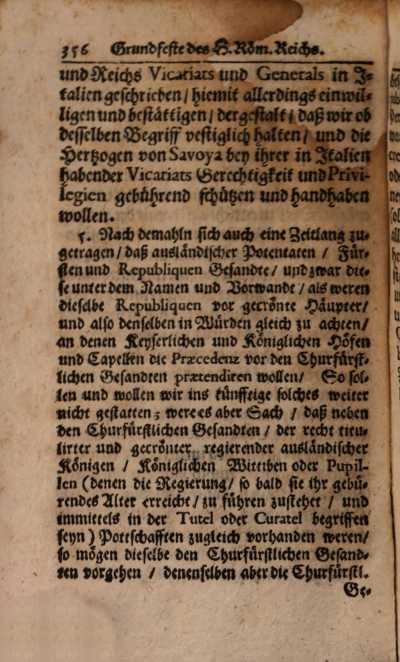 356 Grundfeste des H. Röm. Reichs.
und Reichs Vicariats und Generals in J-
talien geschrieben / hiemit allerdings einwil-
ligen und bestättigen / dergestalt / daß wir ob
desselben Begriff vestiglich halten / und die
Hertzogen von Savoya bey ihrer in Jtalien
habender Vicariats Gerechtigkeit und Privi-
legien gebührend schützen und handhaben
wollen.
5. Nach demahln sich auch eine Zeitlang zu-
getragen / daß ausländischer Potentaten / Für-
sten und Republiquen Gesandte / und zwar die-
se unter dem Namen und Vorwandt / als weren
dieselbe Republiquen vor gecrönte Häupter /
und also denselben in Würden gleich zu achten /
an denen Keyserlichen und Königlichen Höfen
und Capellen die Præcedenz vor den Churfürst-
lichen Gesandten prætendiren wollen / So sol-
len und wollen wir ins künfftige solches weiter
nicht gestatten; were es aber Sach / daß neben
den Churfürstlichen Gesandten / der recht titu-
lirter und gecrönter regierender ausländischer
Königen / Königlichen Wittiben oder Pupil-
len (denen die Regierung / so bald sie ihr gebü-
rendes Alter erreicht / zu führen zustehet / und
immittels in der Tutel oder Curatel begriffen
seyn) Pottschafften zugleich vorhanden weren /
so mögen dieselbe den Churfürstlichen Gesand-
ten vorgehen / denenselben aber die Churfürstl.
Ge-